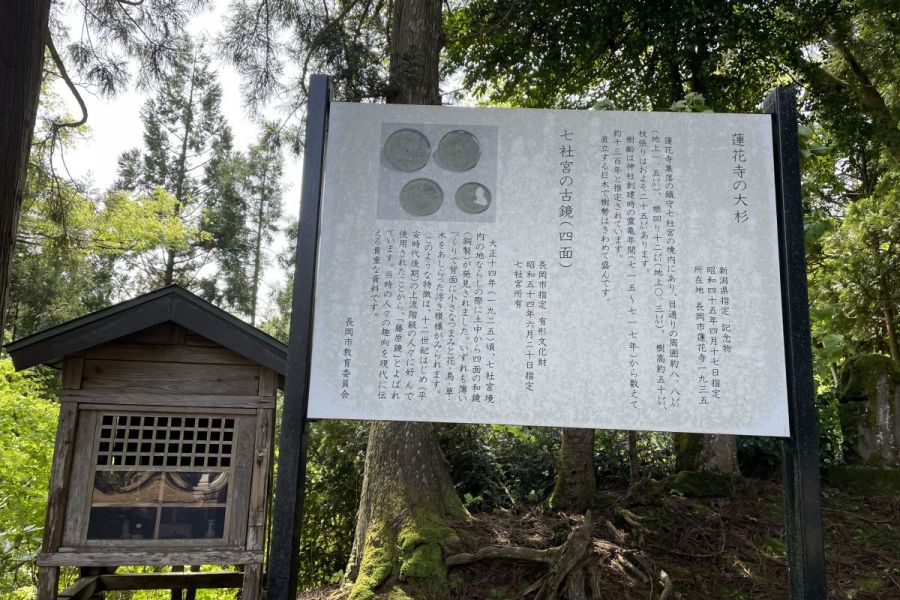 蓮花寺の大杉
新潟県指定 記念物
昭和四十五年四月十七日指定
所在地 長岡市蓮花寺一九三五
蓮花寺集落の鎮守七社宮の境内にあり、目通りの周囲約八、八㍍
(地上一・五㍍)、根回り十二㍍(地上〇・三㍍)、樹高約五十㍍、
枝張りはおよそ二十五㍍あります。
樹齢は神社創建時の霊亀年間(七一五〜七一七年)から数えて
約千三百年と推定されています。
直立する巨木で樹勢はきわめて盛んです。
七社宮の古鏡(四面)
長岡市指定 有形文化財
昭和五十四年六月二十日指定
七社宮所有
大正十四年(一九二五)頃、七社宮境
内の地ならしの際に土中から四面の和鏡
(銅製)が発見されました。いずれも薄い
つくりで背面に小さなつまみと花・鳥・草・
木をあしらった浮き模様がみられます。
このような特徴は、十二世紀はじめ(平
安時代後期)の上流階級の人々に好んで
使用されたことから、「藤原鏡」とよばれ
ています。当時の人々の趣向を現代に伝
える貴重な資料です。
長岡市教育委員会